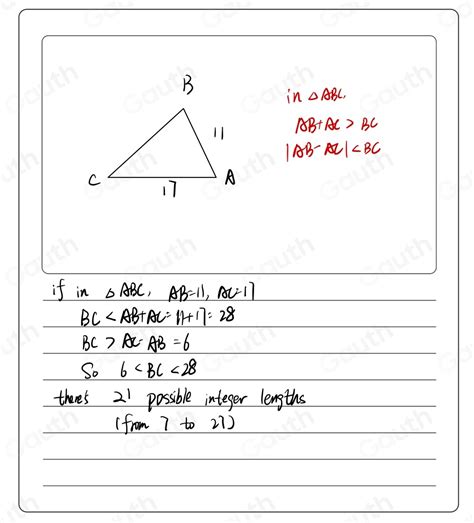 B
in △ABC,
AB+AC > BC
11
|AB-AC| < BC
C
A
17
if in △ABC, AB=11, AC=17
BC < AB+AC = 11+17 = 28
BC > AC-AB = 6
So 6 < BC < 28
there's 21 possible integer lengths
(from 7 to 27)
Gauth